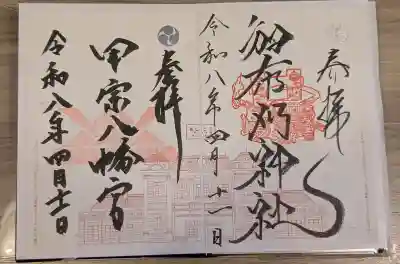 奉拝
和布刈神社
令和八年四月十一日
奉拝
甲宗八幡宮
令和八年四月十一日